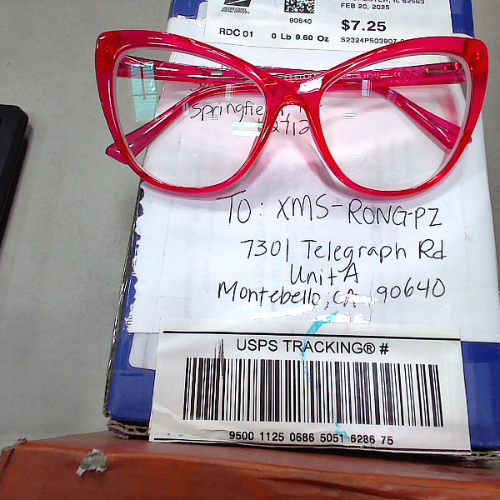 FEB 20, 2025
90640
$7.25
RDC 01 0 Lb 9.60 Oz
Springfield
TO: XMS-RONG-PZ
7301 Telegraph Rd
Unit A
Montebello, CA 90640
USPS TRACKING® #
9500 1125 0686 5051 6286 75